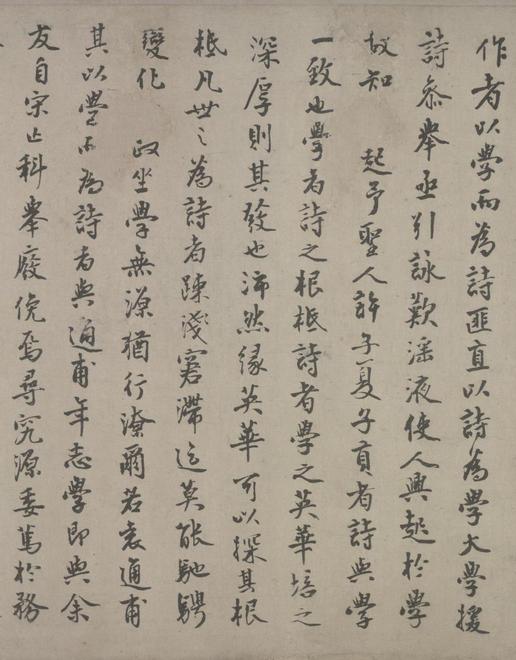 作者以學而為詩匪直以詩為學大學援
詩叅舉亟引詠歎滛液使人興起於學
故知 起予聖人許子夏子貢者詩與學
一致也學者詩之根柢詩者學之英華培之
深厚則其發也沛然緣英華可以探其根
柢凡世之為詩者踈淺窘滯迄莫能馳騁
變化 政坐學無源猶行潦爾若袁通甫
其以學而為詩者與通甫年志學即與余
友自宋亡科舉廢俛焉尋究源委篤於務